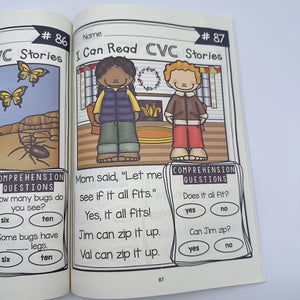 VC
# 86
COMPREHENSION
QUESTIONS
How many bugs do
you see?
six
ten
Some bugs have
legs.
six
ten
Name
# 87
I Can Read CVC Stories
Mom said, "Let me
see if it all fits."
Yes, it all fits!
Jim can zip it up.
Val can zip it up.
COMPREHENSION
QUESTIONS
Does it all fit?
yes
no
Can Jim zip?
yes
no
87